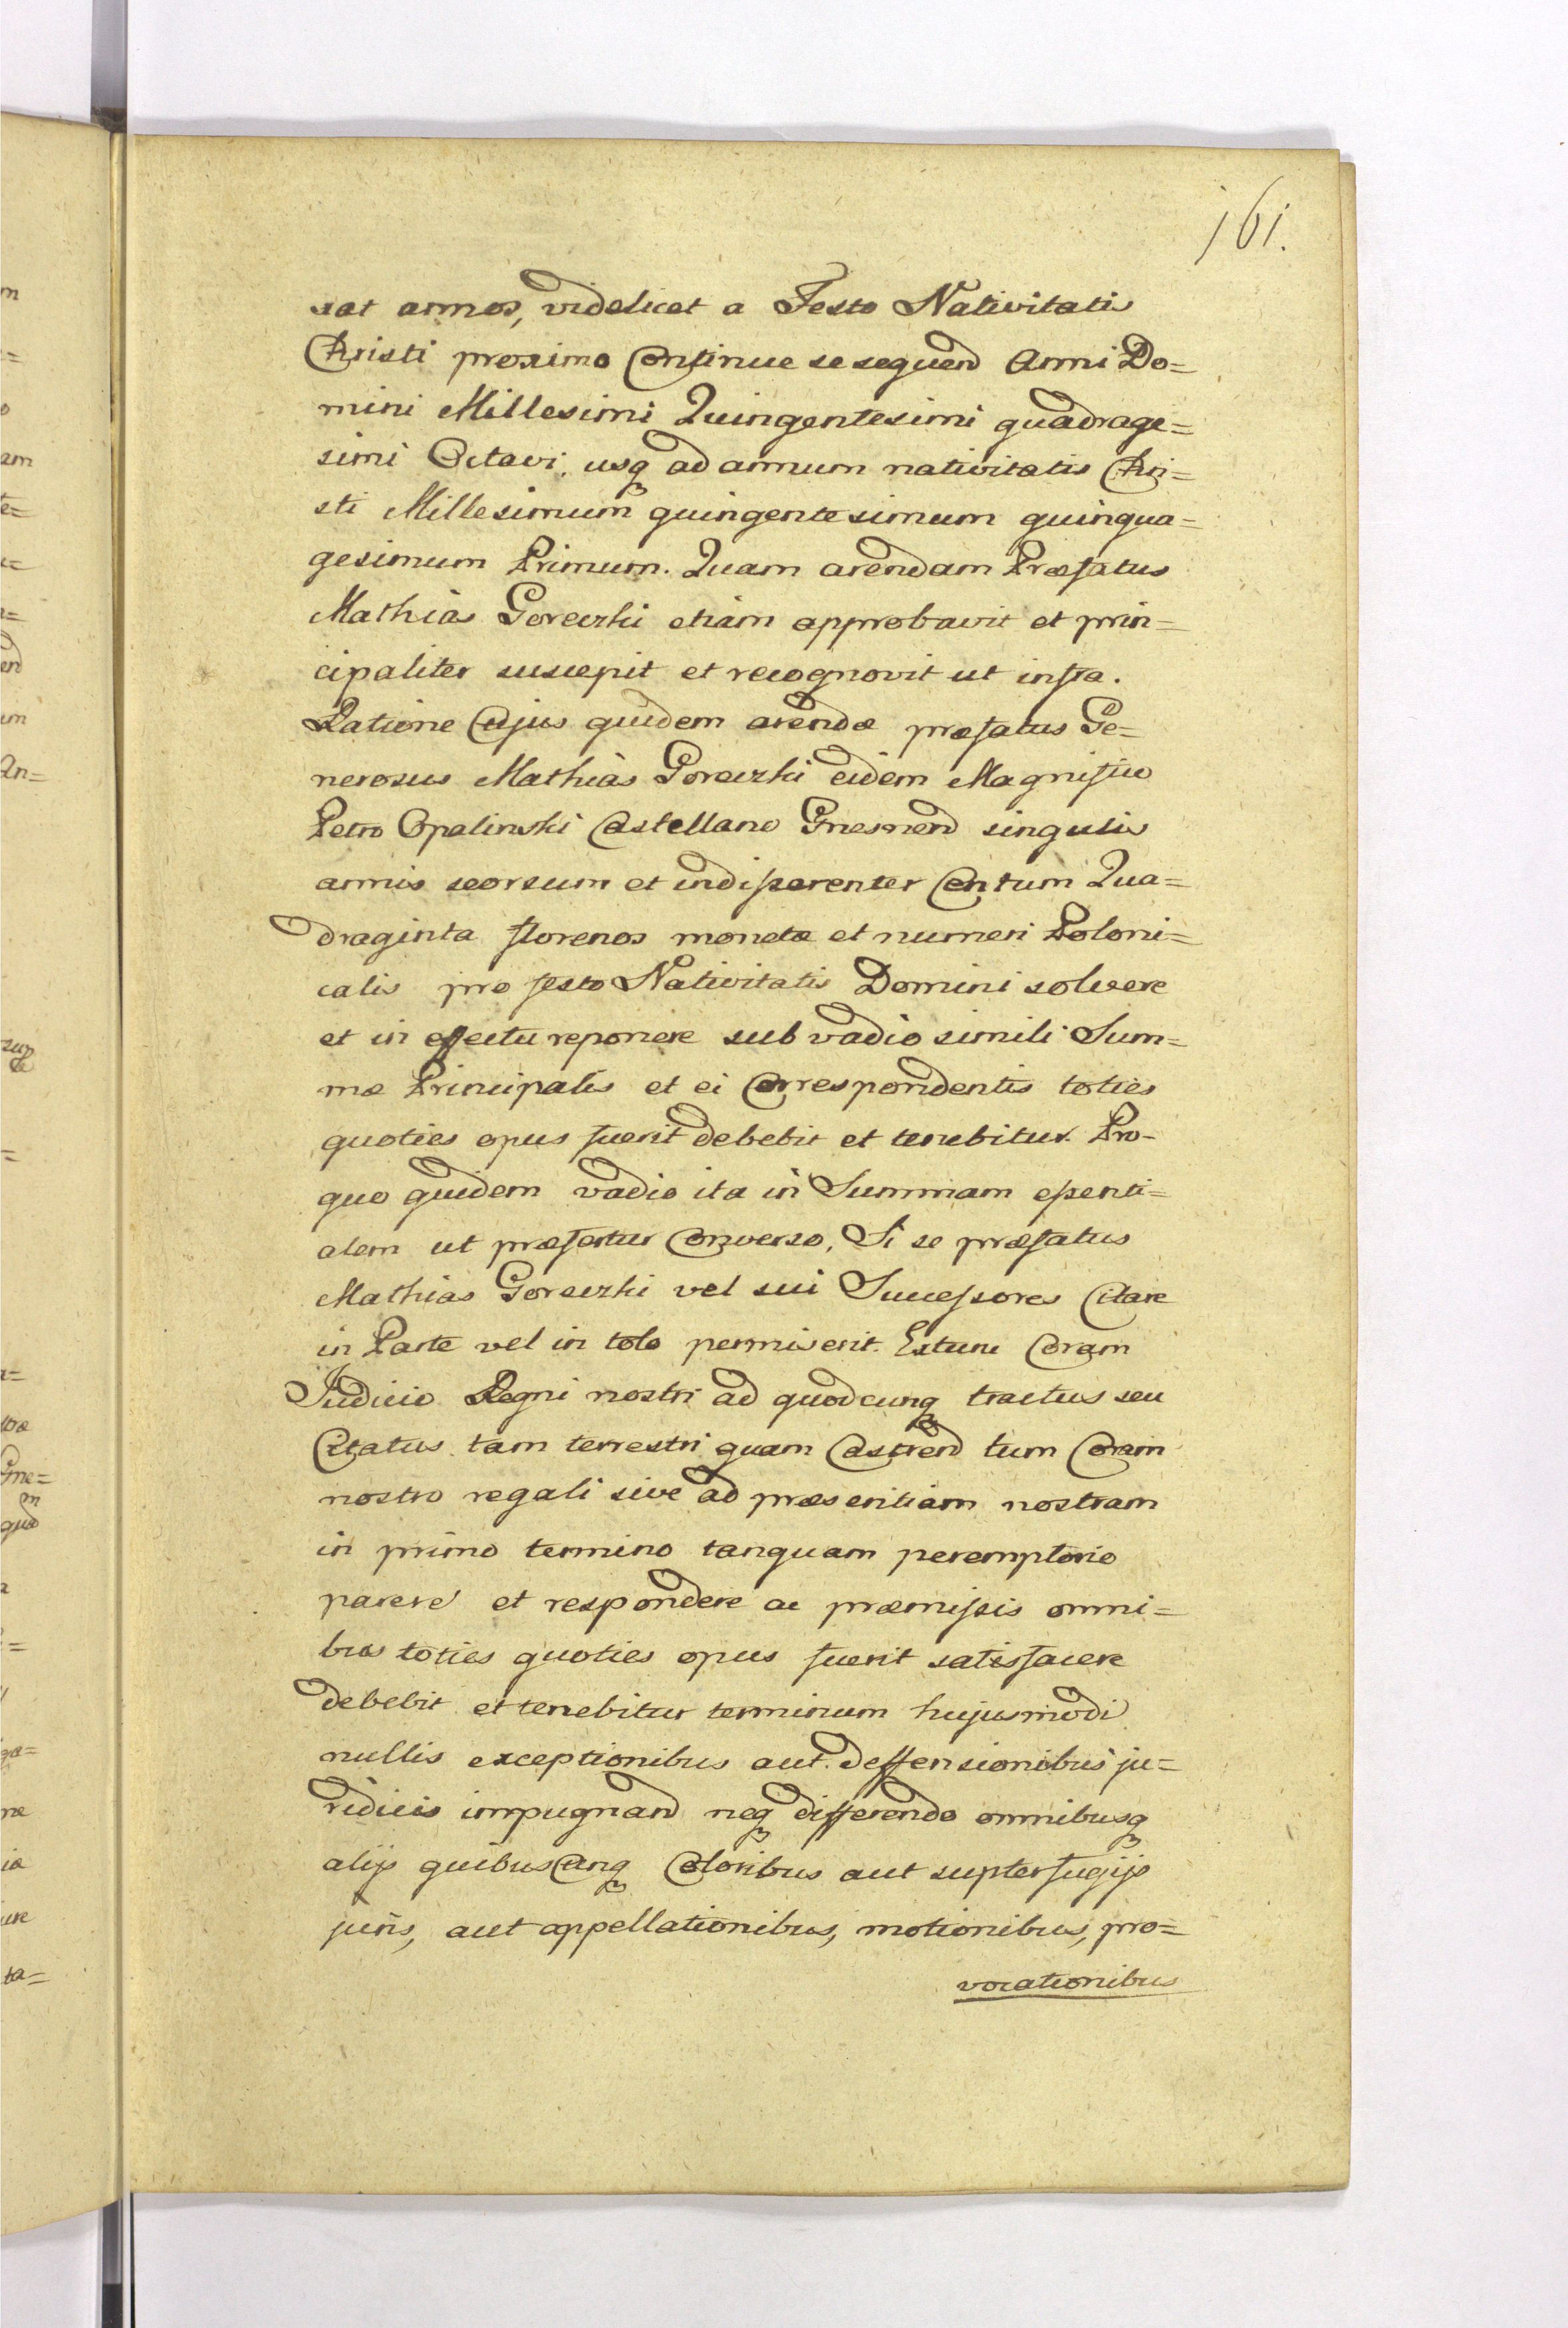 161.
rat annos, videlicet a Festo Nativitatis
Christi proximo Continue se sequend Anni Do=
mini Millesimi Quingentesimi quadrage=
simi Octavi, usq ad annum nativitatis Chri=
sti Millesimum quingentesimum quinqua=
gesimum Primum. Quam arendam Præfatus
Mathias Goreczki etiam approbavit et prin=
cipaliter suscepit et recognovit ut infra.
Ratione Cujus quidem arendæ præfatus Ge=
nerosus Mathias Goreczki eidem Magnifico
Petro Opalinski Castellano Gnesnend singulis
annis seorsum et indifferenter Centum Qua=
draginta florenos monetæ et numeri Poloni=
calis pro festo Nativitatis Domini solvere
et in effectu reponere sub vadio simili Sum=
mæ Principalis et ei Correspondentis toties
quoties opus fuerit debebit et tenebitur. Pro-
quo quidem vadio ita in Summam essenti=
alem ut præfertur Converso, Si se præfatus
Mathias Goreczki vel sui Successores Citare
in Parte vel in toto permiserit. Extunc Coram
Judicio Regni nostri ad quodcunq tractus seu
Citatus tam terrestri quam Castrend tum Coram
nostro regali sive ad præsentiam nostram
in primo termino tanquam peremptorio
parere et respondere ac præmissis omni=
bus toties quoties opus fuerit satisfacere
debebit et tenebitur terminum hujusmodi
nullis exceptionibus aut deffensionibus ju=
ridicis impugnand neq differendo omnibusq
alijs quibuscunq Coloribus aut supterfugijs
juris, aut appellationibus, motionibus, pro=
vocationibus